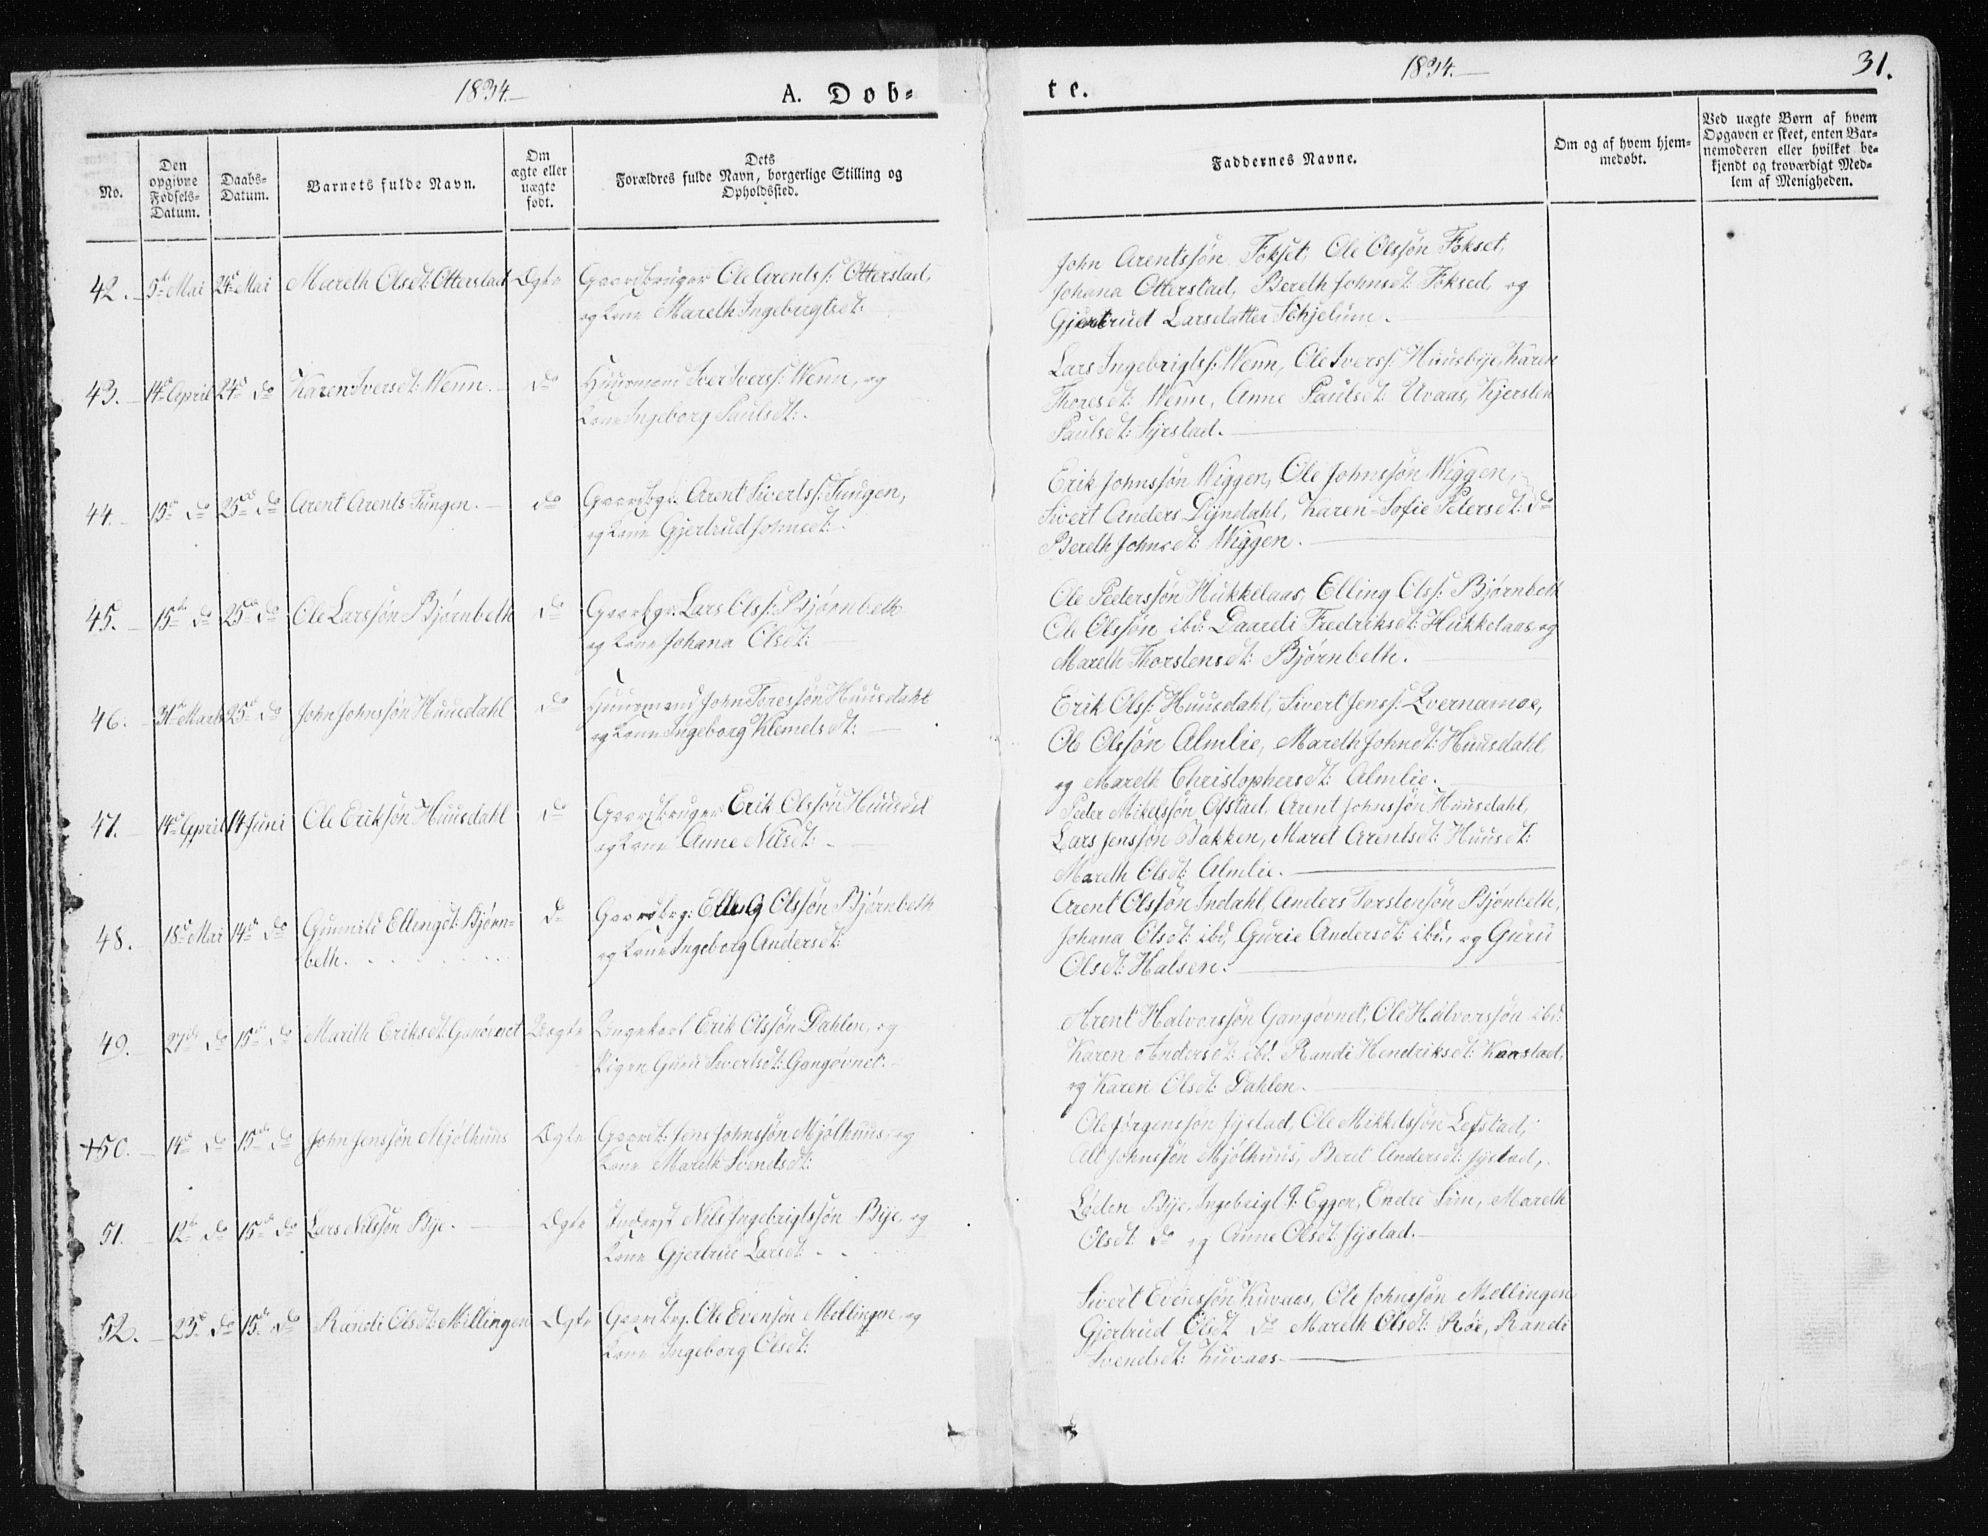 1834.
A. Dob-
te.
1834.
31.
No.
Den opgivne Fødsels-Datum.
Daabs-Datum.
Barnets fulde Navn.
Om ægte eller uægte født.
Dets Forældres fulde Navn, borgerlige Stilling og Opholdssted.
Faddernes Navne.
Om og af hvem hjemmedøbt.
Ved uægte Børn af hvem Opgaven er skeet, enten Barnemoderen eller hvilket bekjendt og troværdigt Medlem af Menigheden.
42. 5te Mai 24de Mai Mareth Olsdt: Otterstad Ægte Gaardbruger Ole Arentss: Otterstad,
og Kone Mareth Ingebrigtsdt:
John Arentssøn Fokset, Ole Olssøn Fokset,
Johana Otterstad, Bereth Johnsdt: Foksed, og
Gjertrud Larsdatter Schjelum.
43. 14de April 24de do Karen Iversdt: Wenn. do Huusmand Iver Iverss: Wenn, og
Kone Ingeborg Paulsdt:
Lars Ingebrigts: Wenn, Ole Iverss: Huusbye, Karen
Thoresdt: Wenn, Anne Paulsdt: Uvaas, Kjersten
Paulsdt: Syrstad.
44. 15de do 25de do Arent Arents Tungen. do Gaardbgr: Arent Sivertss: Tungen,
og Kone Gjertrud Johnsdt:
Erik Johnssøn Wiggen, Ole Johnssøn Wiggen,
Sivert Anders Dyndahl, Karen-Sofie Petersdt: do
Bereth Johnsdt: Wiggen.
45. 15de do 25de do Ole Larssøn Bjørnbeth do Gaardbgr: Lars Olss: Bjørnbeth
og Kone Johana Olsdt:
Ole Pederssøn Hukkelaas, Elling Olss: Bjørnbeth
Ole Olssøn ibd: Daardi Fredriksdt: Hukkelaas, og
Mareth Thorstensdt: Bjørnbeth.
46. 31te Marts 25de do John Johnssøn Huusdahl do Huusmand John Toressøn Huusdahl
og Kone Ingeborg Klemetsdt:
Erik Olss: Huusdahl, Sivert Jenss: Qvernamoe,
Ole Olssøn Almlie, Mareth Johndt: Huusdahl
og Mareth Christophersdt: Almlie.
47. 14de April 14 Juni Ole Erikssøn Huusdahl do Gaardbruger Erik Olssøn
og Kone Anne Nilsdt:
Peder Mikelssøn Ofstad, Arent Johnssøn Huusdahl,
Lars Jenssøn Bakken, Maret Arentsdt: Huusdt:
Mareth Olsdt: Almlie.
48. 18de Mai 14de do Gunnild Ellingsdt: Bjørn-
beth.
do Gaardbrg: Elling Olssøn Bjørnbeth
og Kone Ingeborg Andersdt:
Arent Olssøn Indahl, Anders Torstensøn Bjønbeth,
Johana Olsdt: ibd, Gurie Andersdt: ibd., og Guru
Olsdt: Halsen.
49. 27de do 15de do Marith Eriksdt: Uægte Ungekarl Erik Olssøn Dahlen, og
Pigen Guru Sivertsdt: Gangøvnet.
Arent Halvorssøn Gangøvnet, Ole Halvorssøn ibd:
Karen Andersdt: ibd. Randi Hendriksdt: Kaarstad,
og Karen Olsdt: Dahlen.
+50. 14de do 15de do John Jenssøn Mjølhuus Ægte Gaardb: Jens Johnssøn Mjølhuus, og
Kone Mareth Svendsdt:
Ole Jørgenssøn Jystad, Ole Mikkelssøn Lefstad,
Johnssøn Mjølhuus, Beret Andersdt: Jystad,
51. 12te do 15de do Lars Nilssøn Bye. Ægte Inderst Nils Ingebrigtssøn Bye, og
Kone Gjertrue Larsdt:
Løden Bye, Ingebrigt Eggen, Endre Siin, Mareth
Olsdt: do og Anne Olsdt: Jystad.
52. 23de do 15de do Randi Olsdt: Millingen Ægte Gaardbrg. Ole Evensøn Mellingen, og
Kone Ingeborg Olsdt:
Sivert Evenssøn Kuvaas, Ole Johnssøn Mellingen
Gjertrud Olsdt do Mareth Olsdt: Røe, Randi
Svendsdt: Kuvaas.